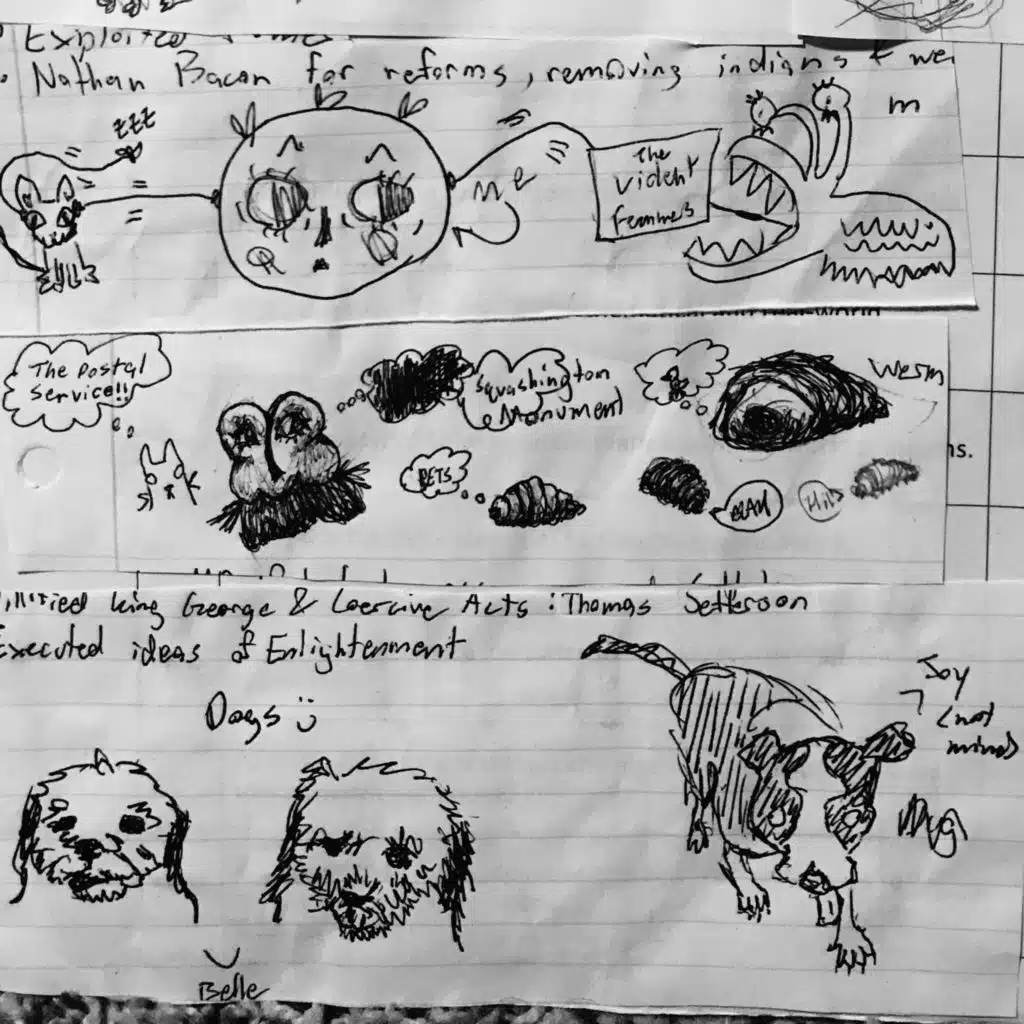 Exploited
• Nathan Bacon for reforms, removing indians + we
m
zzz
me
The
Violent
Femmes
The Postal
Service!!
Squashington
Monument
Werm
BETS
BLAH
Hi!
ns.
King George & Coercive Acts : Thomas Jefferson
Executed ideas of Enlightenment
Dogs :)
Joy
(not
mines)
Belle